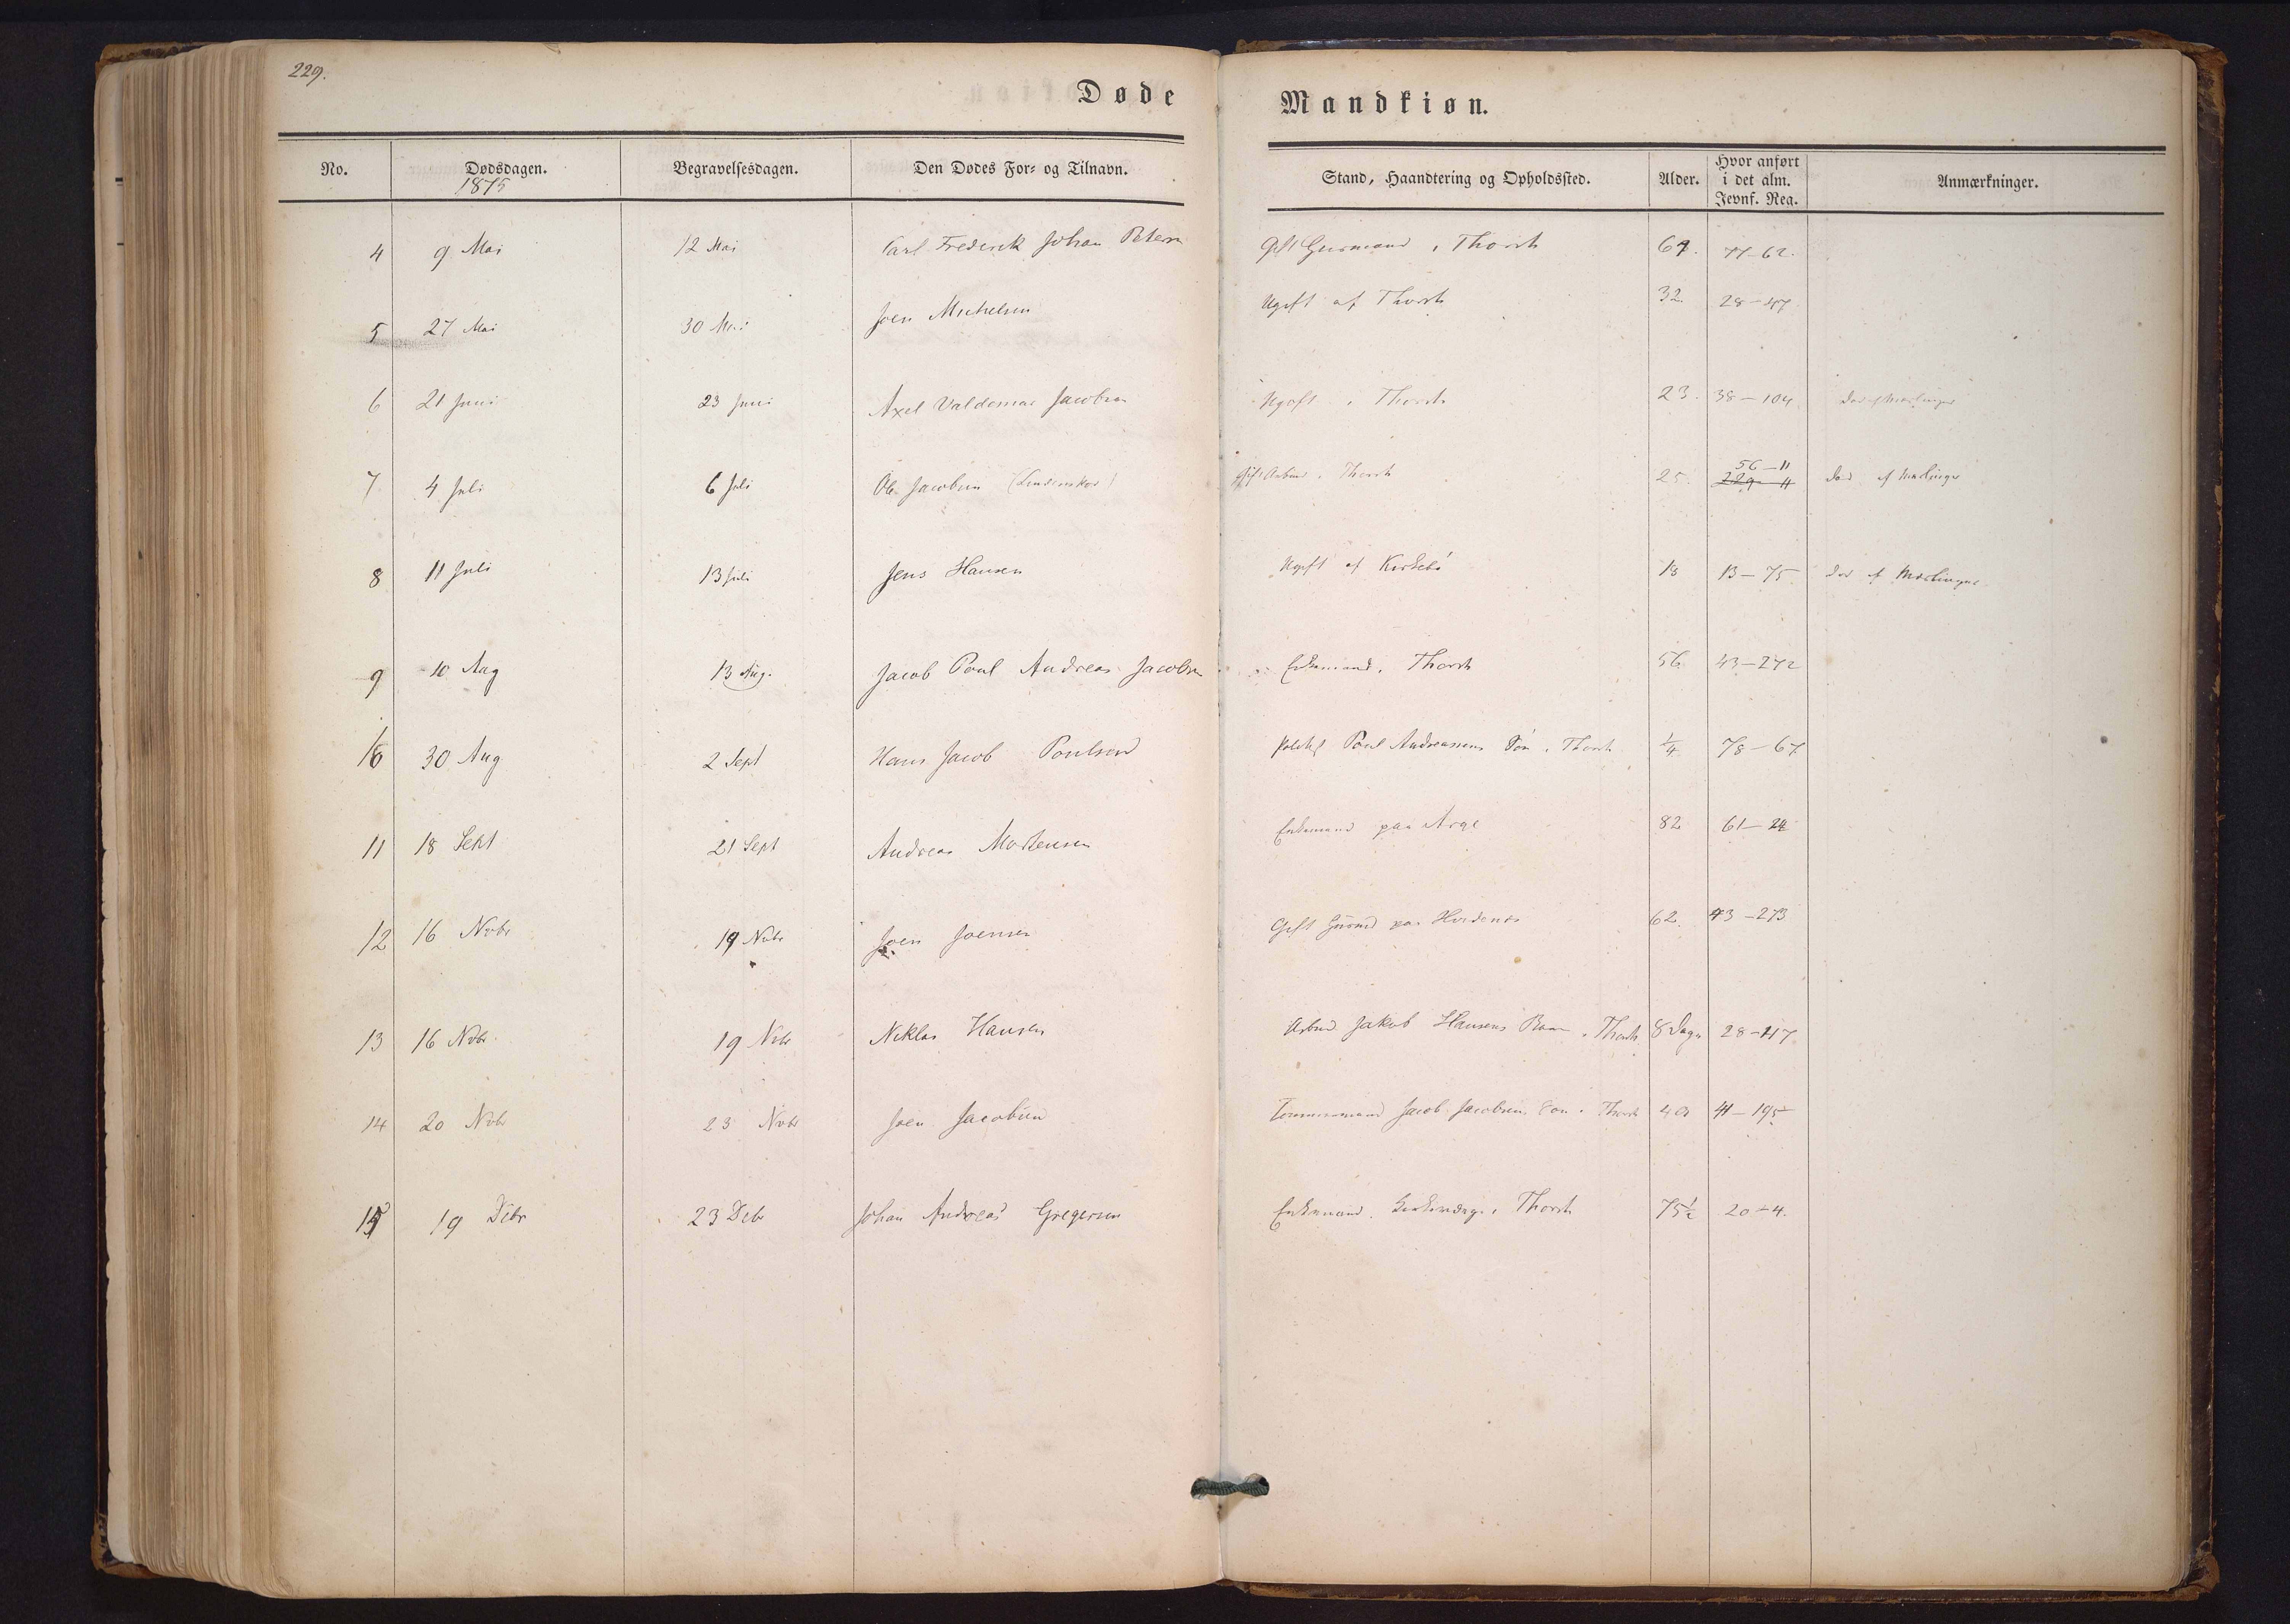 229.
Døde Mandkiøn.
No. Dødsdagen. Begravelsesdagen. Den Dødes For- og Tilnavn. Stand, Haandtering og Opholdssted. Alder. Hvor anført i det alm. Jevnf. Reg. Anmærkninger.
1875
4 9 Mai 12 Mai Carl Frederik Johan Petersen Gift Huusmand i Thorsh 77-62.
5 27 Mai 30 Mai Joen Michelsen Ugift af Thorsh 32. 28-47
6 21 Juni 23 Juni Axel Valdemar Jacobsen Ugift i Thorsh 23. 38-104 Død af Mæslinger
7 4 Juli 6 Juli Ole Jacobsen Gift Arbmd i Thorsh 25. 56-11 229-11 Død af Mæslinger
8 11 Juli 13 Juli Jens Hansen Ugift af Kirkebø 18 13-75 Død af Mæslingerne
9 10 Aug 13 Aug. Jacob Poul Andreas Jacobsen Enkemand i Thorsh 56 43-272
10 30 Aug 2 Sept Hans Jacob Poulsen Poul Andreasens Søn i Thorsh 1/4 78-67
11 18 Sept 21 Sept Andreas Mortensen Enkemand paa Arge 82 61-24
12 16 Novbr 19 Novbr Joen Joensen Gift Huusmd paa Hvidenæs 62. 43-273
13 16 Nvbr. 19 Nvbr Niklas Hansen Arbmd Jakob Hansens Barn i Thorsh 8 Dage 28-47
14 20 Nvbr 23 Nvbr Joen Jacobsen Tømmermand Jacob Jacobsens Søn i Thorsh 41-195
15 19 Debr 23 Debr Johan Andreas Gregersen Enkemand i Thorsh 75½ 20-4.